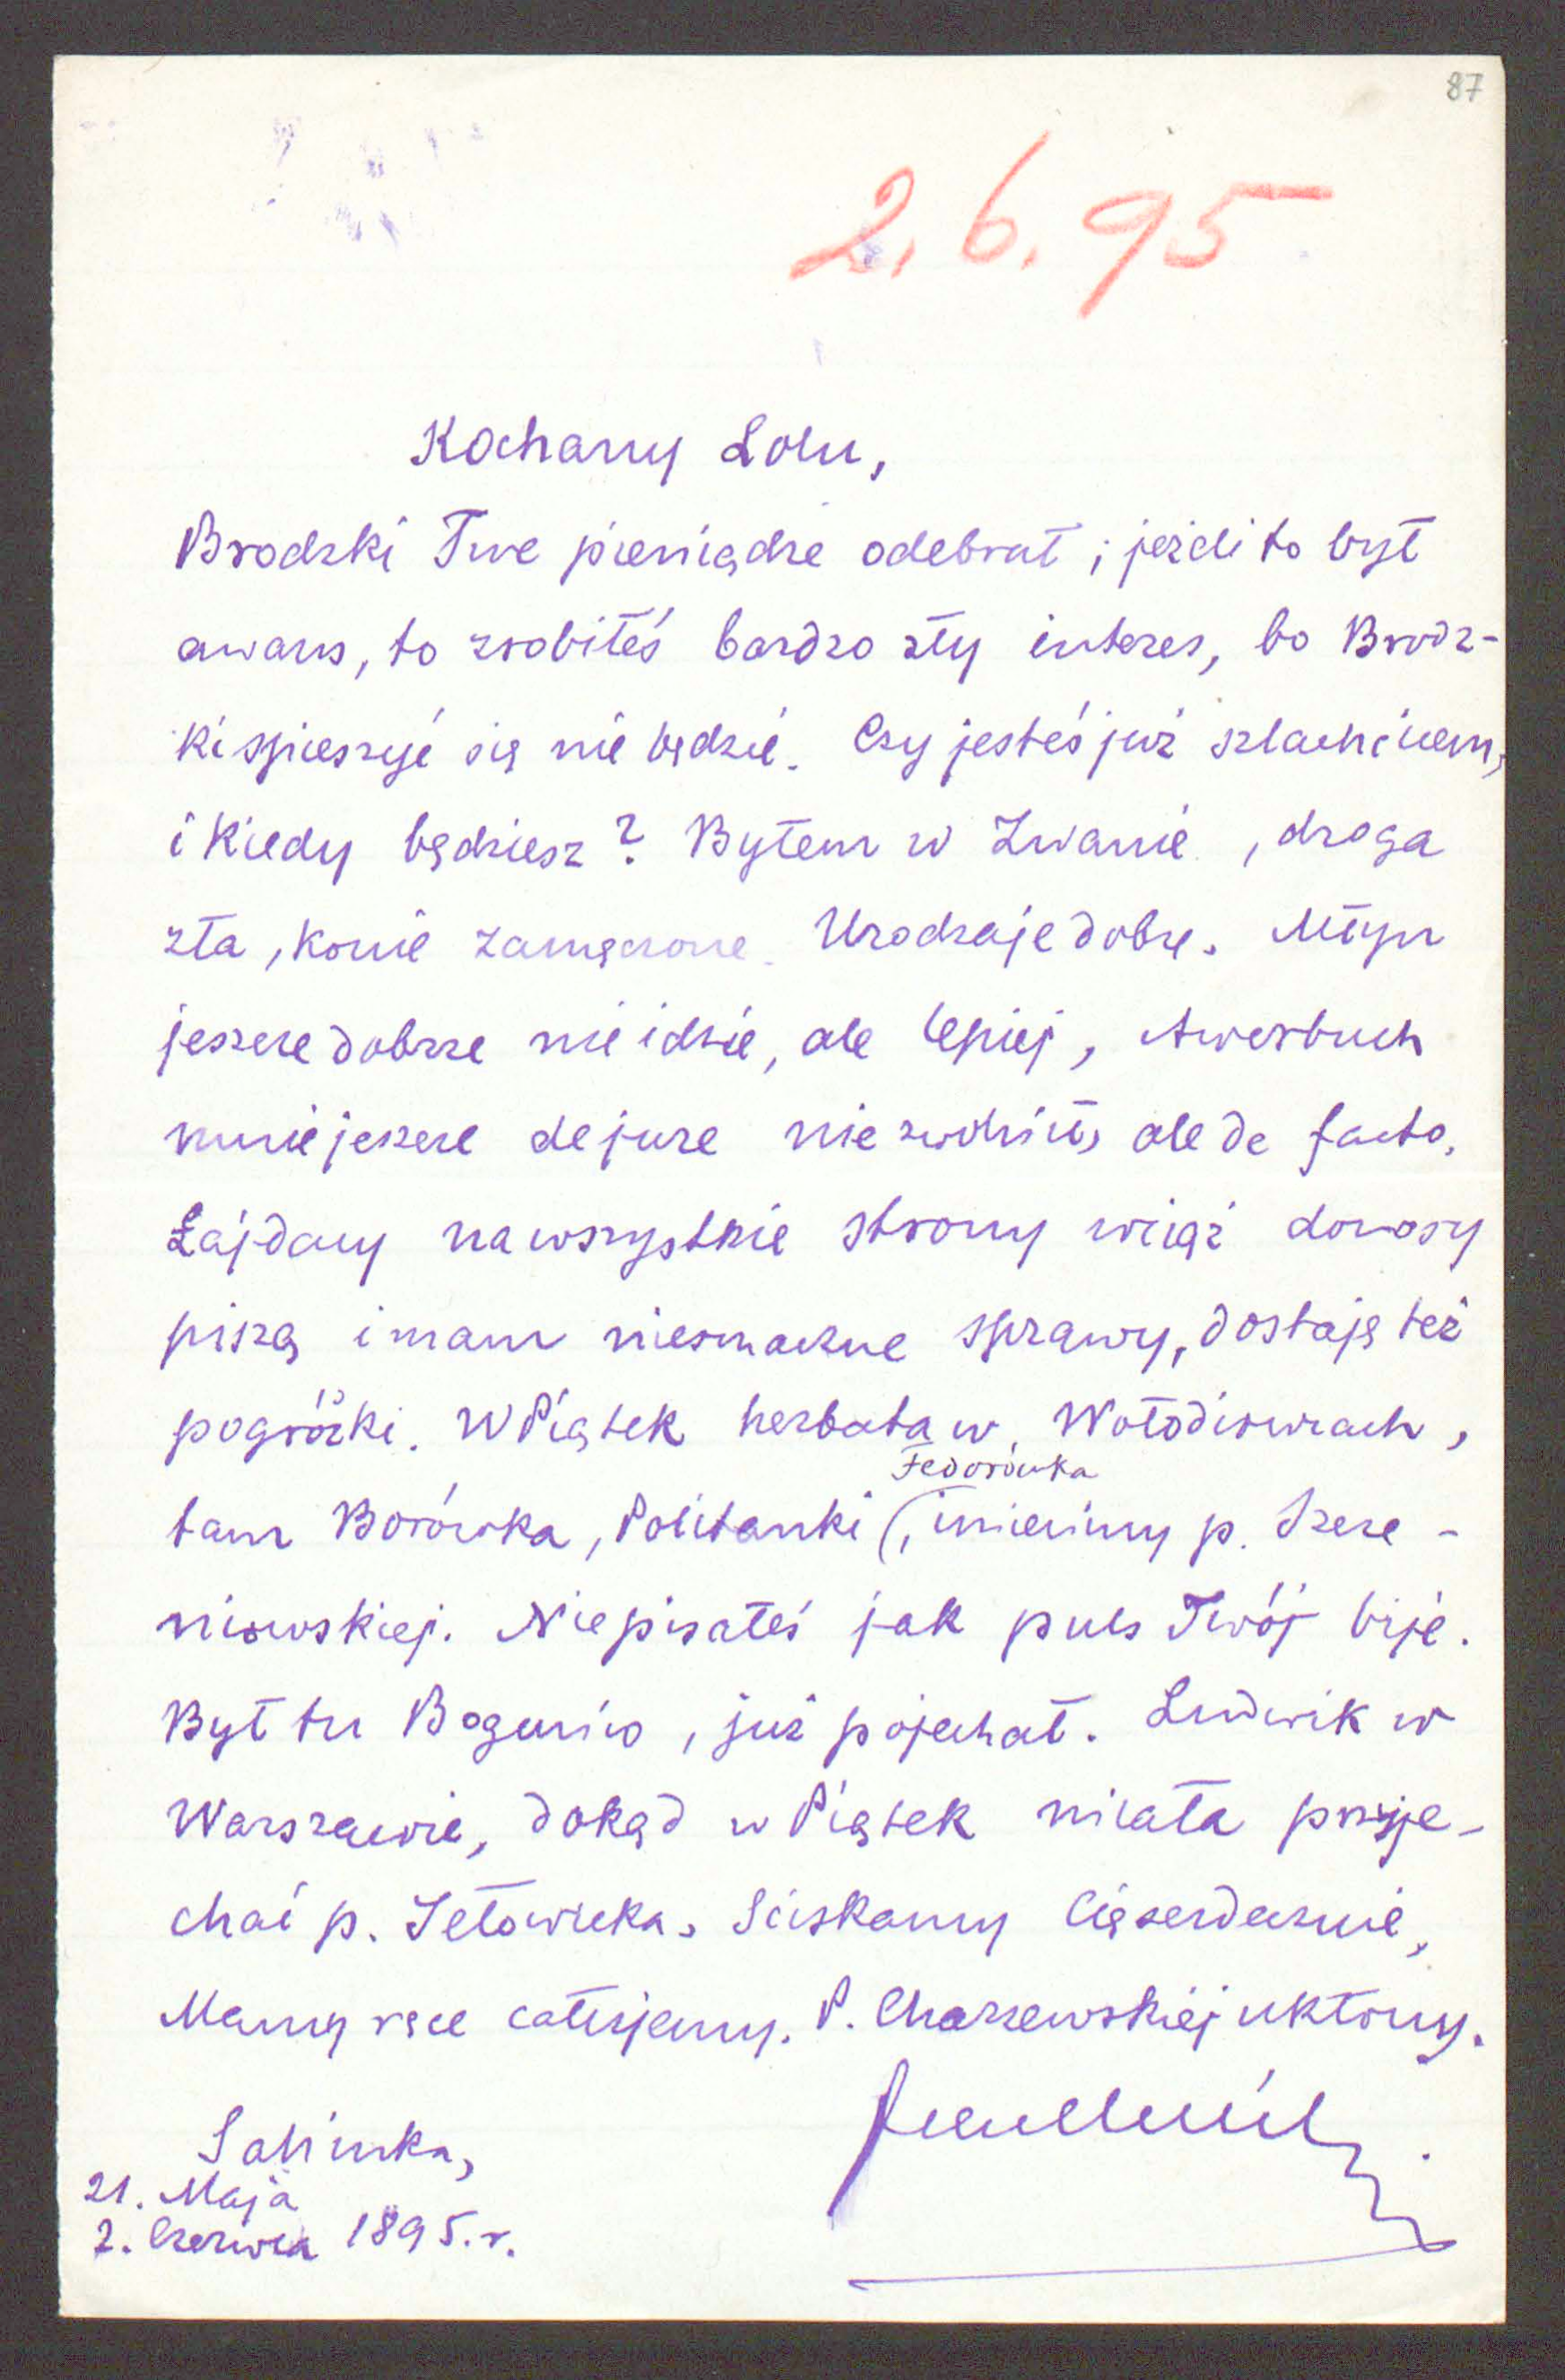 87
2.6.95
Kochany Lolu,
Brodzki Twe pieniądze odebrał; jeżeli to był
awans, to zrobiłeś bardzo zły interes, bo Brodz-
ki spieszyć się nie będzie. Czy jesteś już szlachcicem,
i kiedy będziesz? Byłem w Żwanie, droga
zła, konie zamęczone. Urodzaje dobre. Młyn
jeszcze dobrze nie idzie, ale lepiej, Awerbuch
mnie jeszcze de jure nie zwolnił, ale de facto.
Łajdacy na wszystkie strony wciąż donosy
piszą i mam niesmaczne sprawy, dostaję też
pogróżki. W Piątek herbata w
Fedorówka
tam Borówka, Politanki (, imieniny p. Szeze-
niowskiej. Nie pisałeś jak puls Twój bije.
Był tu Bogusio, już pojechał. Ludwik w
Warszawie, dokąd w Piątek miała przyje-
chać p. Jełowicka. Ściskamy Cię serdecznie,
Mamy ręce całujemy. P. Charzewskiej ukłony.
Salinka,
21. Maja
2. Czerwca 1895.r.